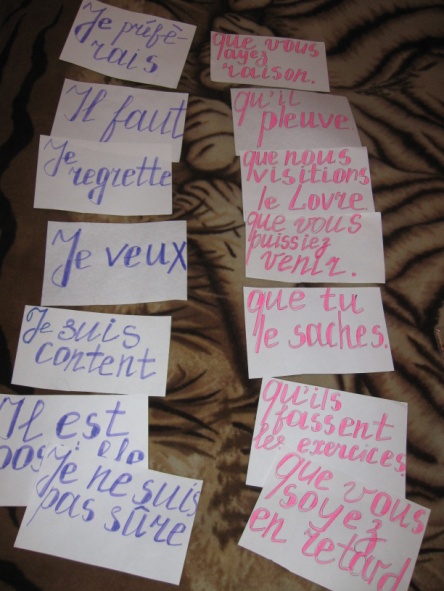 Je préfè-
rais
que vous
ayez
raison.
Il faut
qu'il
pleuve
Je
regrette
que nous
visitions
le Lovre
Je veux
que vous
puissiez
venir.
Je suis
content
que tu
le saches.
Il est
qu'ils
fassent
les exercices.
Je ne suis
pas sûre
que vous
soyez
en retard